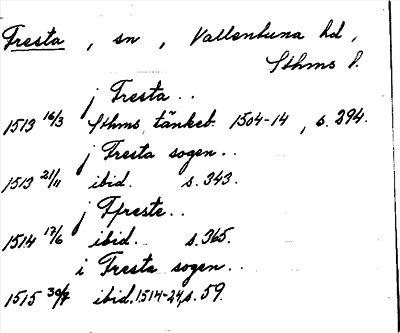 Fresta , sn , Vallentuna hd ,
Sthms l.
j Fresta . .
1513 16/3 Sthms tänkeb. 1504-14 , s. 294.
j Fresta sogen . .
1513 21/11 ibid. s. 343.
j Ffreste . .
1514 17/6 ibid. s. 365.
i Fresta sogen . .
1515 30/7 ibid. 1514-24, s. 59.